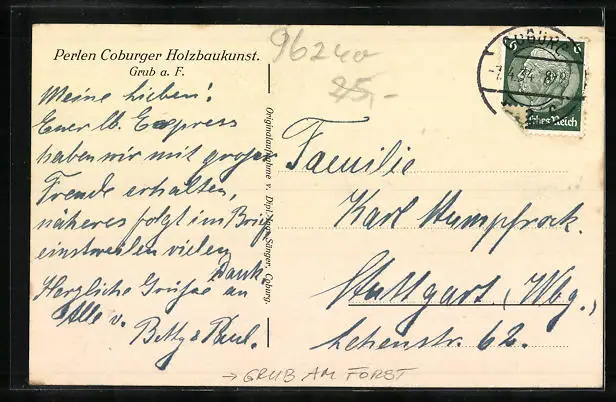 Perlen Coburger Holzbaukunst.
Grub a. F.
Meine Lieben!
Euer lb. Express
haben wir mit grosser
Freude erhalten,
näheres folgt im Brief
einstweilen vielen
Dank.
Herzliche Grüsse an
Alle v.
Betty & Paul.
Originalaufnahme v. Dipl. Ing. Sänger, Coburg
96240
25,-
COBURG
-7.4.34. 8-9
6
6
Deutsches Reich
Familie
Karl Stumpfrock.
Stuttgart, (Wbg.)
Lehenstr. 62.
→ GRUB AM FORST